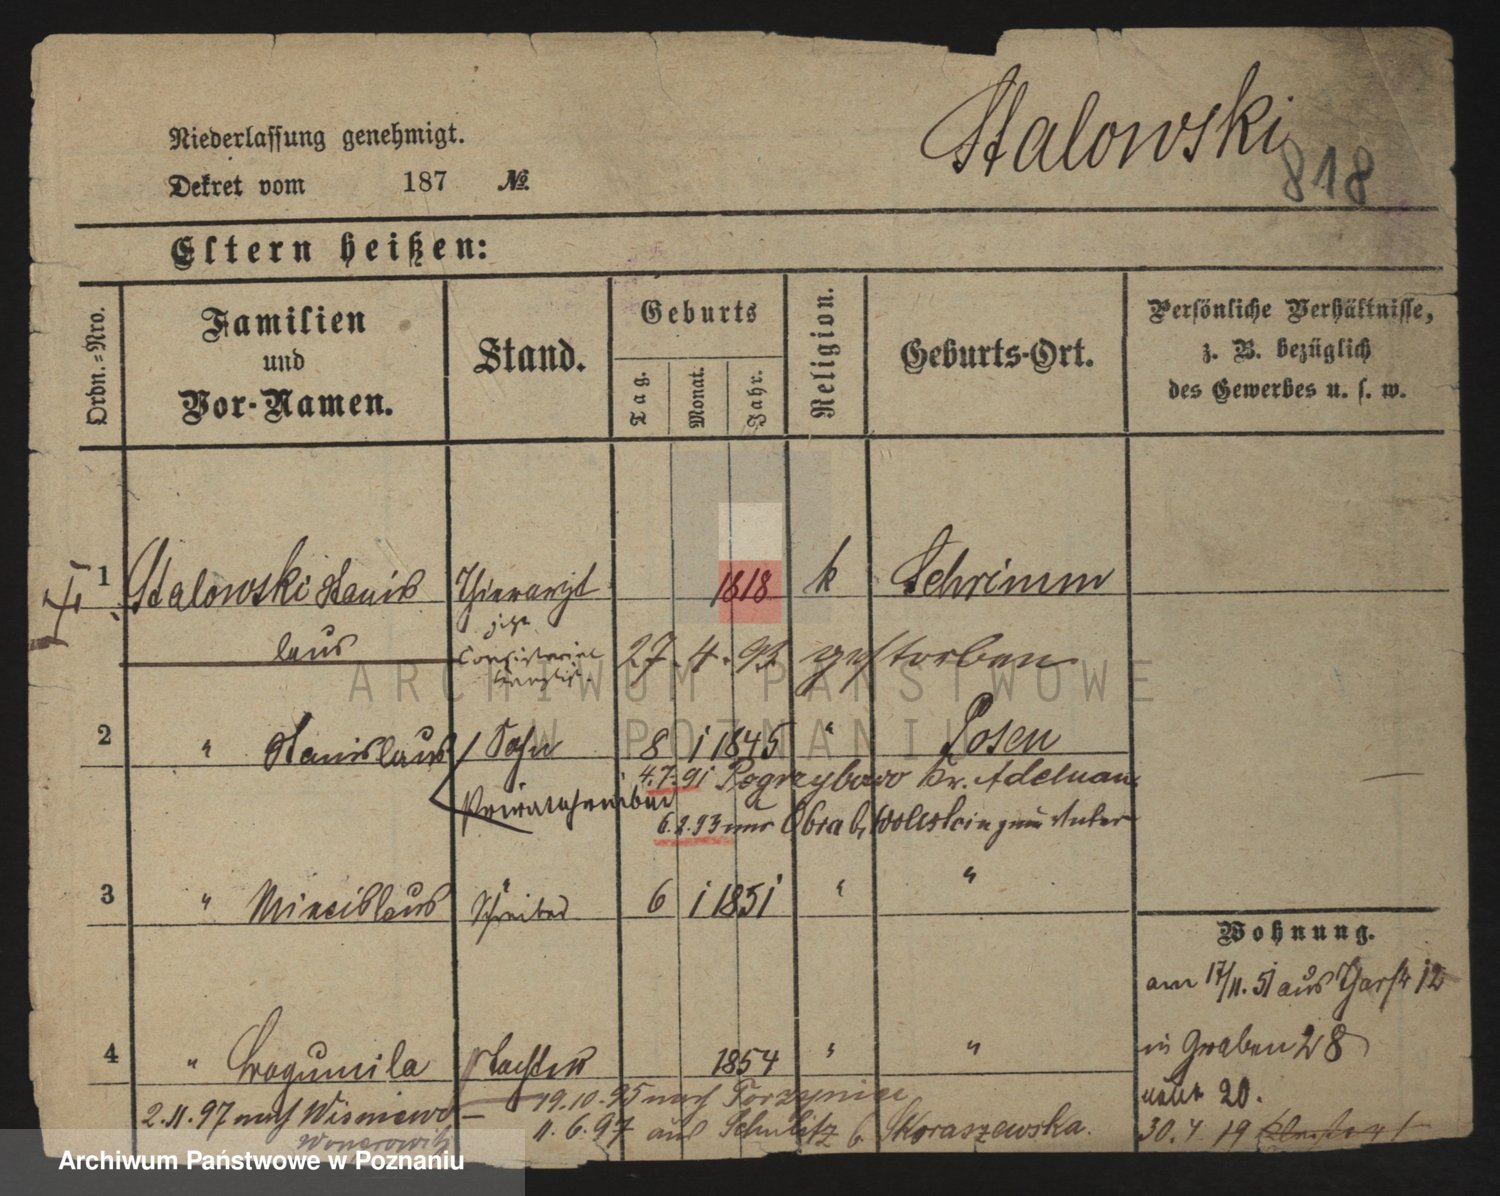 Stalowski
818
Niederlassung genehmigt.
Dekret vom 187 No.
Eltern heißen:
Ordn.-Nro.
Familien und Vor-Namen.
Stand.
Geburts
Tag.
Monat.
Jahr.
Religion.
Geburts-Ort.
Persönliche Verhältnisse, z. B. bezüglich des Gewerbes u. s. w.
1 Stalowski Stanis Thierarzt 1818 k Schrimm
laus jetzt 27. 4. 93 gestorben
2 " Stanislaus / Sohn 8 1 1845 " Posen
4.7.91 Pogrzybowo Kr. Adelnau
6.2.93 Obra b. Wollstein
3 " Miecislaus " Schreiber 6 1 1851 " "
Wohnung.
am 17/11. 51 aus 12
in Graben 28
4 " Bogumila Tochter 1854 " "
20.
2.11.97 nach Wisniewo – 19.10.95 nach
11.6.97 aus Schulitz b. Skoraszewska.
30.4 19
ARCHIWUM PAŃSTWOWE
W POZNANIU
Archiwum Państwowe w Poznaniu